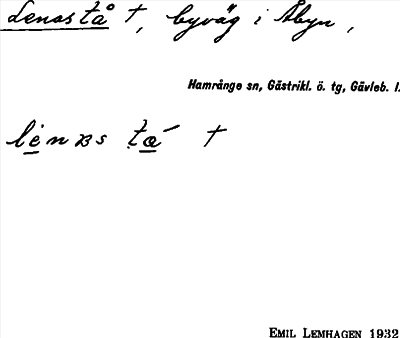 Lenastå †, byväg i Åbyn,
Hamrånge sn, Gästrikl. ö. tg, Gävleb. l.
EMIL LEMHAGEN 1932